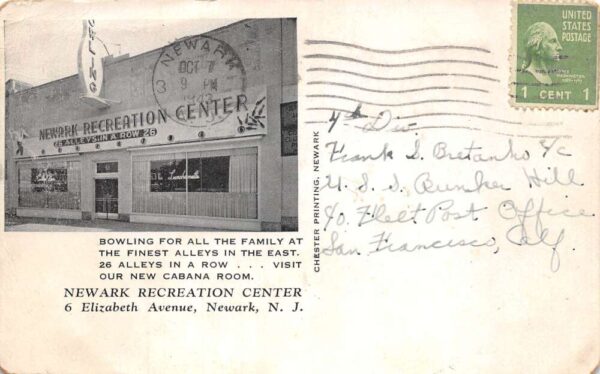 BOWLING
NEWARK
OCT 7
9 PM
3
NEWARK RECREATION CENTER
26 ALLEYS IN A ROW 26
Luncheonette
BOWLING FOR ALL THE FAMILY AT
THE FINEST ALLEYS IN THE EAST.
26 ALLEYS IN A ROW . . . VISIT
OUR NEW CABANA ROOM.
NEWARK RECREATION CENTER
6 Elizabeth Avenue, Newark, N. J.
CHESTER PRINTING, NEWARK
UNITED
STATES
POSTAGE
WASHINGTON
1 CENT 1
4th Div.
Frank S. Bretanko S/c
U. S. S. Bunker Hill
c/o Fleet Post Office
San Francisco, Calif.